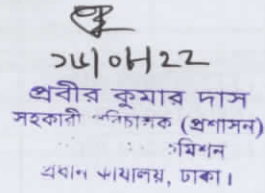 প্রবীর কুমার দাস
সহকারী পরিচালক (প্রশাসন)
মিশন
প্রধান কার্যালয়, ঢাকা।